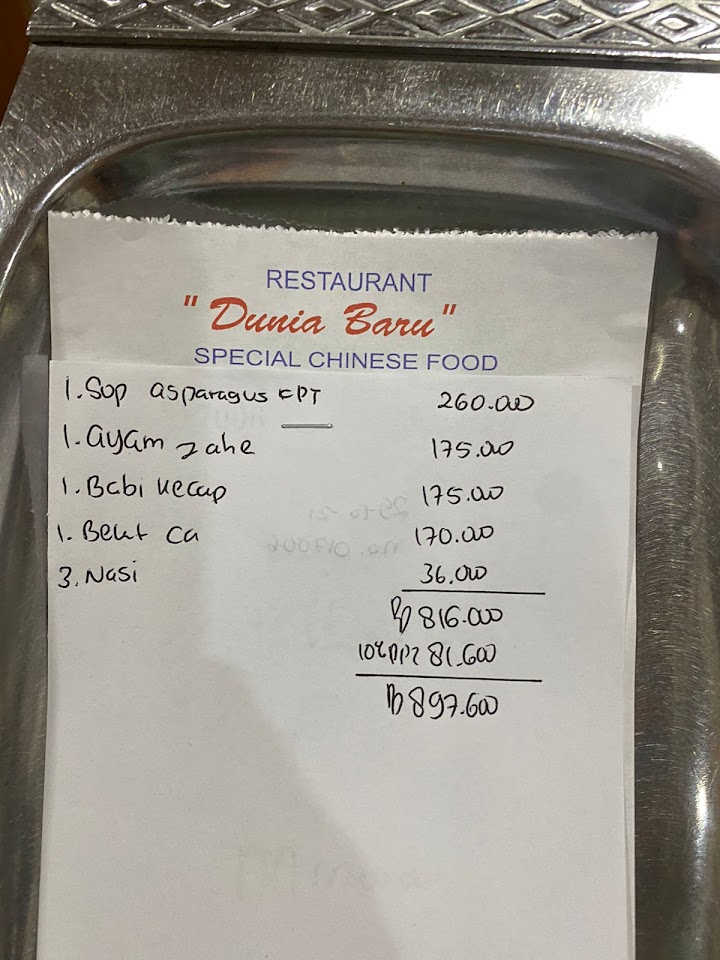 RESTAURANT
"Dunia Baru"
SPECIAL CHINESE FOOD
1. Sop asparagus KPT 260.000
1. ayam Jahe 175.000
1. Babi kecap 175.000
1. Belut Ca 170.000
3. Nasi 36.000
Rp 816.000
10% PP1 81.600
Rp 897.600